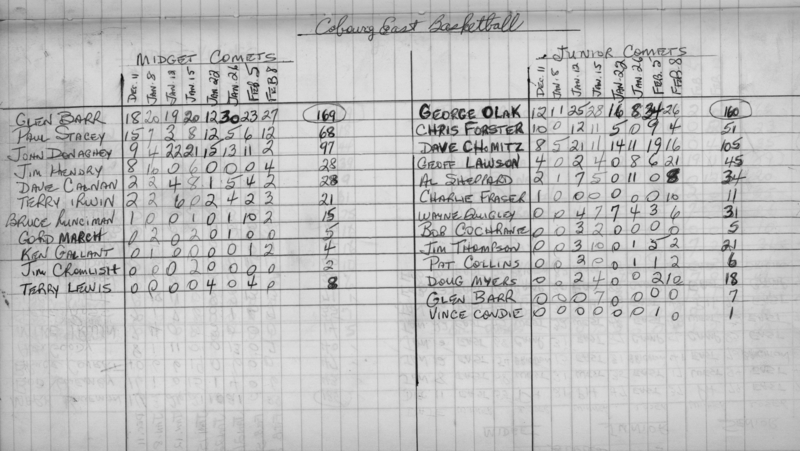 Cobourg East Basketball
MIDGET COMETS
DEC. 11 JAN. 8 JAN. 12 JAN. 15 JAN. 22 JAN. 26 FEB. 5 FEB 8
GLEN BARR 18 20 19 20 12 30 23 27 169
PAUL STACEY 15 7 3 8 12 5 6 12 68
JOHN DONAGHEY 9 4 22 21 15 13 11 2 97
JIM HENDRY 8 10 0 6 0 0 0 4 28
DAVE CALNAN 2 2 4 8 1 5 4 2 28
TERRY IRWIN 2 2 6 0 2 4 2 3 21
BRUCE RUNCIMAN 1 0 0 1 0 1 10 2 15
GORD MARCH 0 2 0 2 0 1 0 0 5
KEN GALLANT 0 1 0 0 0 0 1 2 4
JIM CROMLISH 0 0 0 2 0 0 0 0 2
TERRY LEWIS 0 0 0 0 4 0 4 0 8
JUNIOR COMETS
DEC. 11 JAN. 8 JAN. 12 JAN. 15 JAN. 22 JAN 26 FEB. 5 FEB. 8
GEORGE OLAK 12 11 25 28 16 8 34 26 160
CHRIS FORSTER 10 0 12 11 5 0 9 4 51
DAVE CHMITZ 8 5 21 11 14 11 19 16 105
GEOFF LAWSON 4 0 2 4 0 8 6 21 45
AL SHEPPARD 2 1 7 5 0 11 0 8 34
CHARLIE FRASER 1 0 0 0 0 0 0 10 11
WAYNE QUIGLEY 0 0 4 7 7 4 3 6 31
BOB COCHRANE 0 0 3 2 0 0 0 0 5
JIM THOMPSON 0 0 3 10 0 1 5 2 21
PAT COLLINS 0 0 2 0 0 1 1 2 6
DOUG MYERS 0 0 2 4 0 0 2 10 18
GLEN BARR 0 0 0 7 0 0 0 0 7
VINCE CONDIE 0 0 0 0 0 0 1 0 1